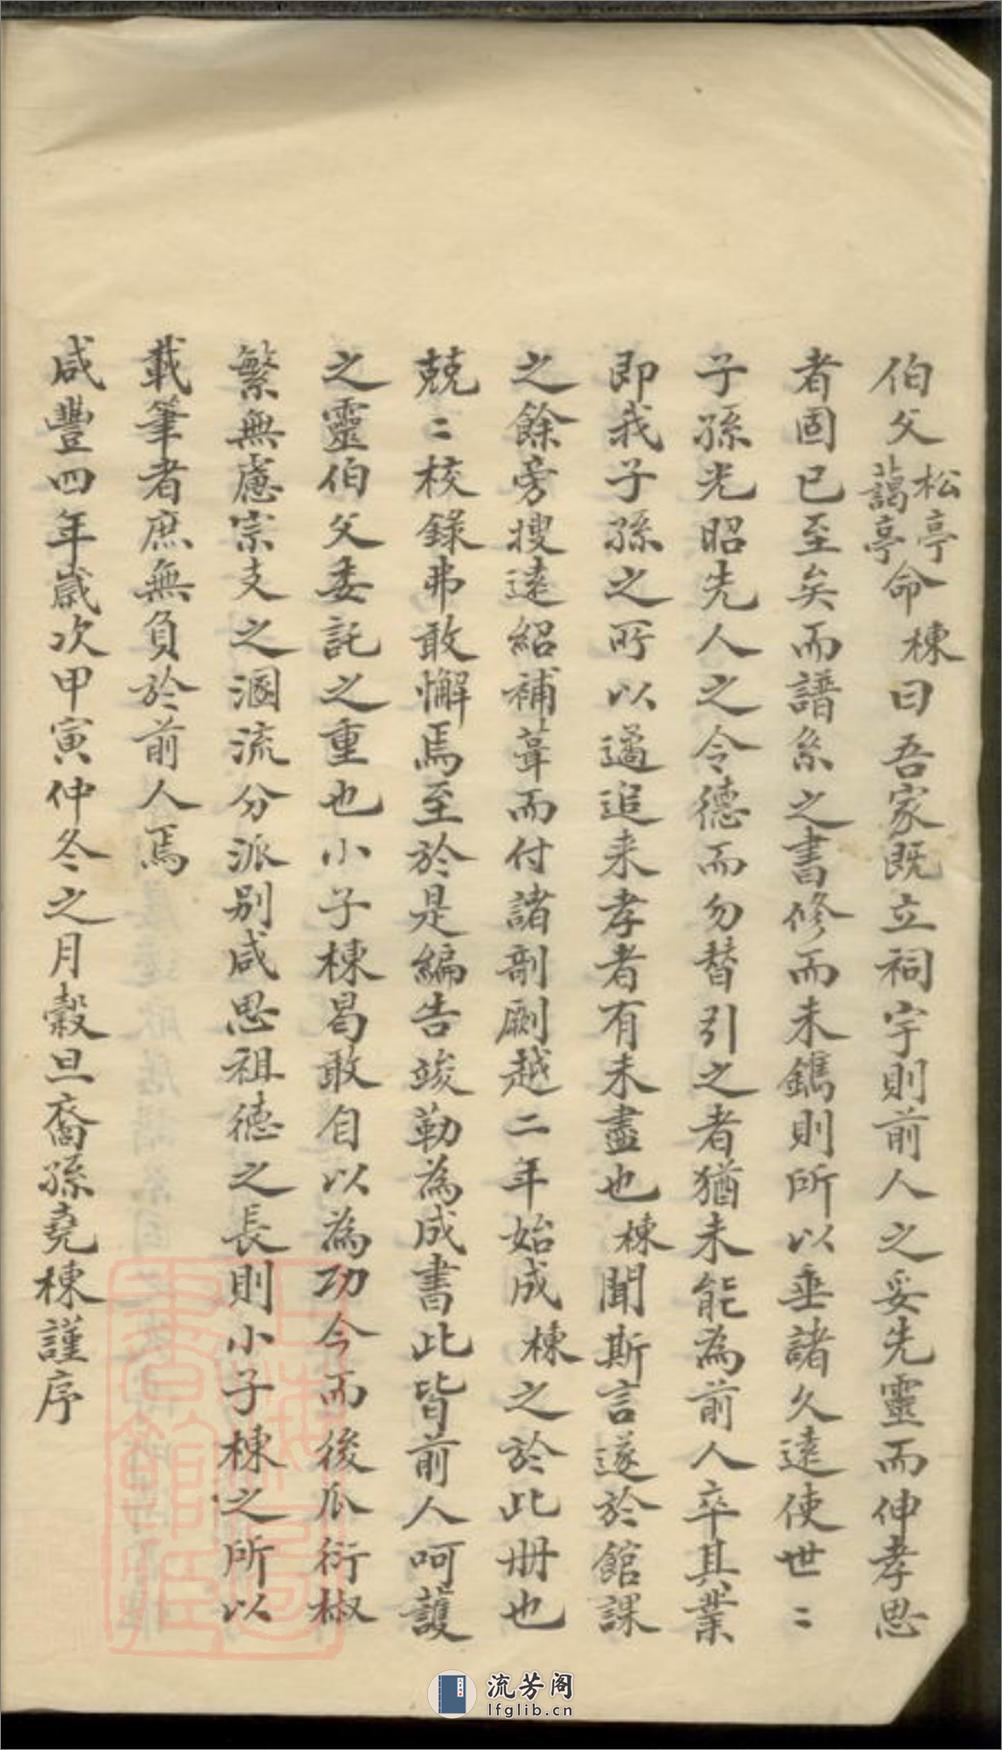 伯父松亭藹亭命棟曰吾家既立祠宇則前人之妥先靈而伸孝思
者固已至矣而譜系之書修而未鐫則所以垂諸久遠使世〻
子孫光昭先人之令德而勿替引之者猶未能為前人卒其業
即我子孫之所以遹追来孝者有未盡也棟聞斯言遂於館課
之餘旁搜遠紹補葺而付諸剞劂越二年始成棟之於此册也
兢〻校錄弗敢懈焉至於是編告竣勒為成書此皆前人呵護
之靈伯父委託之重也小子棟曷敢自以為功今而後瓜衍椒
繁無慮宗支之溷流分派別咸思祖德之長則小子棟之所以
載筆者庶無負於前人焉
咸豐四年歲次甲寅仲冬之月穀旦裔孫堯棟謹序
流芳阁
lfglib.cn